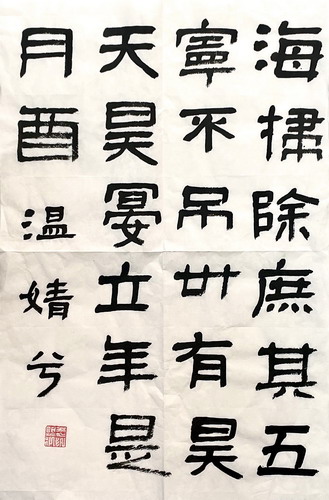 海掃除庶其五
寧不吊卅有昊
天昊晏立年是
月酉温婧兮